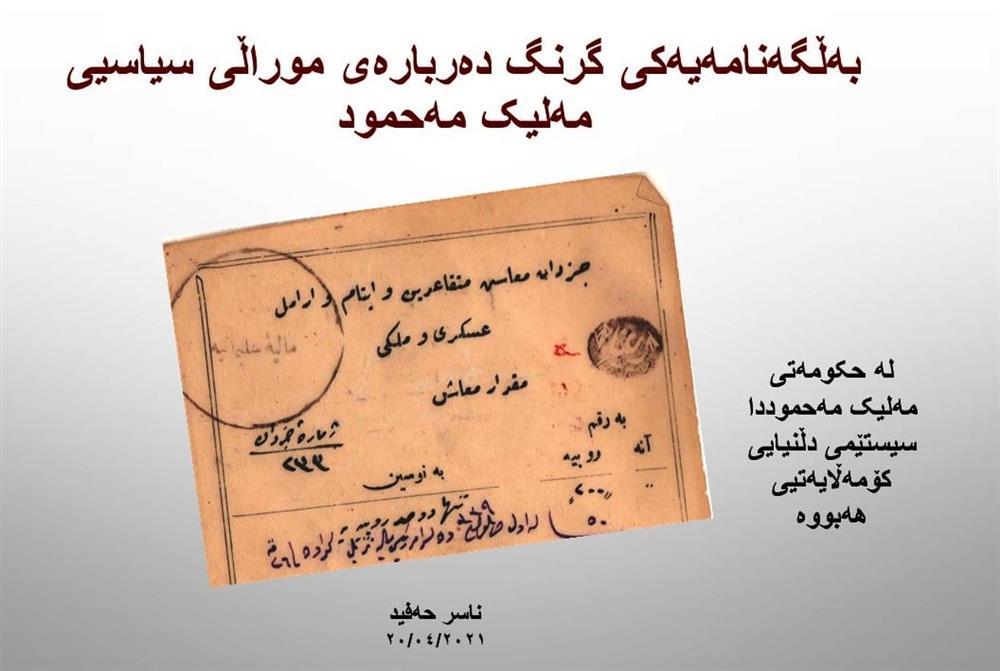 بەڵگەنامەیەکی گرنگ دەربارەی موراڵی سیاسیی
مەلیک مەحمود
جزدان معاش متقاعدین و ایتام و ارامل
عسکری و ملکی
مقدار معاش
بە رقم
آنه روبیه
ژمارهٔ جزدان
٢٣٣
بە نوسین
٢٠٠
تنها دوصد روپیه
٥٠
لە حکومەتی
مەلیک مەحموددا
سیستێمی دڵنیایی
کۆمەڵایەتیی
هەبووە
ناسر حەفید
٢٠/٠٤/٢٠٢١